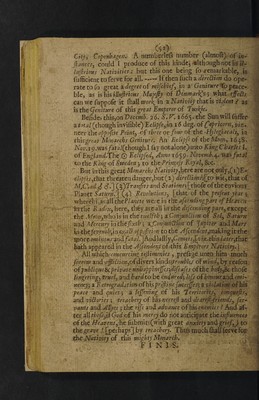 (52)
City, Copenhagen. A numberless number (almost) of in-
stances, could I produce of this kinde, although not in il-
lustrious Nativities; but this one being so remarkable, is
sufficient to serve for all. If then such a direction do ope-
rate to so great a degree of mischief, in a Geniture so peace-
ble, as is his illustrious Majesty of Denmark's; what effects
can we suppose it shall work in a Nativity that is violent? as
is the Geniture of this great Emperor of the Turks.
Besides this, on Decemb. 16. S. P. 1665. the Sun will suffer
a total (though invisible) Eclipse, in 26 deg. of
neer the opposite Point, of three or four of the Hylegiacals, in
this great Monarchs Geniture. An Eclipse of the Moon, 1648.
Nov. 19. was fatal (though I say not alone) unto King Charls I.
of England. The ☉ Eclipsed, Anno 1659. Novem. 4. was fatal
to the King of Sweden; to the Princess Royal, &c.
But in this great Monarchs Nativity, here are not only, (1) E-
clipses, that threaten danger, but (2) directions of so too, that of
(3) Transits and Stations (those of the envious
Planet Saturn.) (4) Revolutions, (that of the present year)
wherein, as all the Planets were in the ascending part of Heaven
in the Radix, here, they are all in the descending part, except
the Moon, who is in the tenth; a Conjunction of Sol, Saturn
and Mercury in the sixth; a Conjunction of Jupiter and Mars
in the seventh, in exact opposition to the Ascendant, making it the
more ominous and fatal. And lastly, Comets, for this latter, that
hath appeared in the Ascending of this Emperors Nativity.
All which concurring testimonies, presage unto him much
sorrow and affliction, of divers kindes; troubles of mind, by reason
of publique & private mutinies; indispositions of the body, & those
lingering, cruel, and hard to be endured; loss of honor and mo-
ney; a Retrogradation of his pristine successes; a violation of his
peace and quiet; a lessening of his Territories, conquests,
and victories; treachery of his neerest and dearest friends, ser-
vants and allies; the rise and advance of his enemies! And af-
ter all these, (if God of his mercy do not anticipate the influences
of the Heavens, he submits (with great anxiety and grief,) to
the grave! [perhaps] by treachery. Thus much shall serve for
the Nativity of this mighty Monarch.
FINIS.